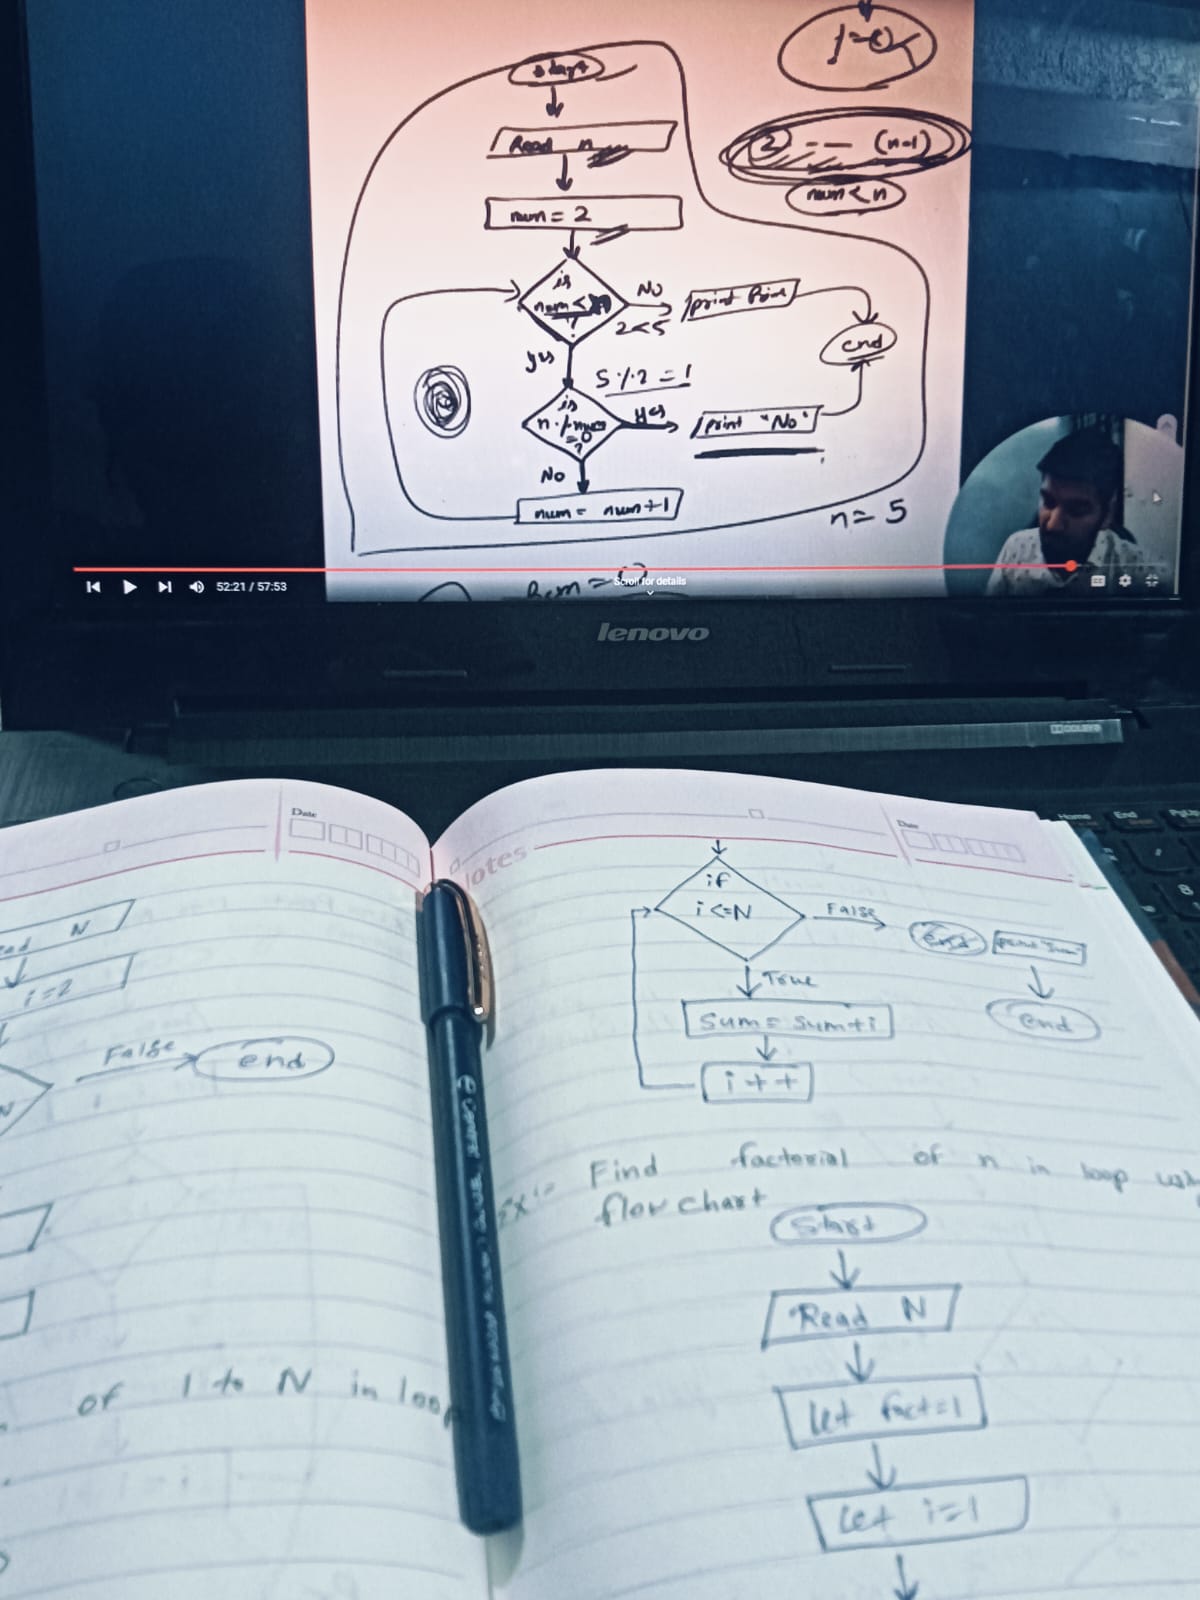 start
Read n
num = 2
is
num <
?
No
2<5
print Prime
end
yes
5 % 2 = 1
is
n % num
=0
?
yes
print "No"
No
num = num+1
n = 5
2 -- — (n-1)
num < n
52:21 / 57:53
Scroll for details
lenovo
Home
End
Date
N
i=2
False
end
of 1 to N in loop
Notes
Date
if
i <= N
False
end
print "Sum"
end
True
Sum = Sum+i
i++
Ex:- Find factorial of n in loop
flow chart
Start
Read N
Let fact=1
Let i=1